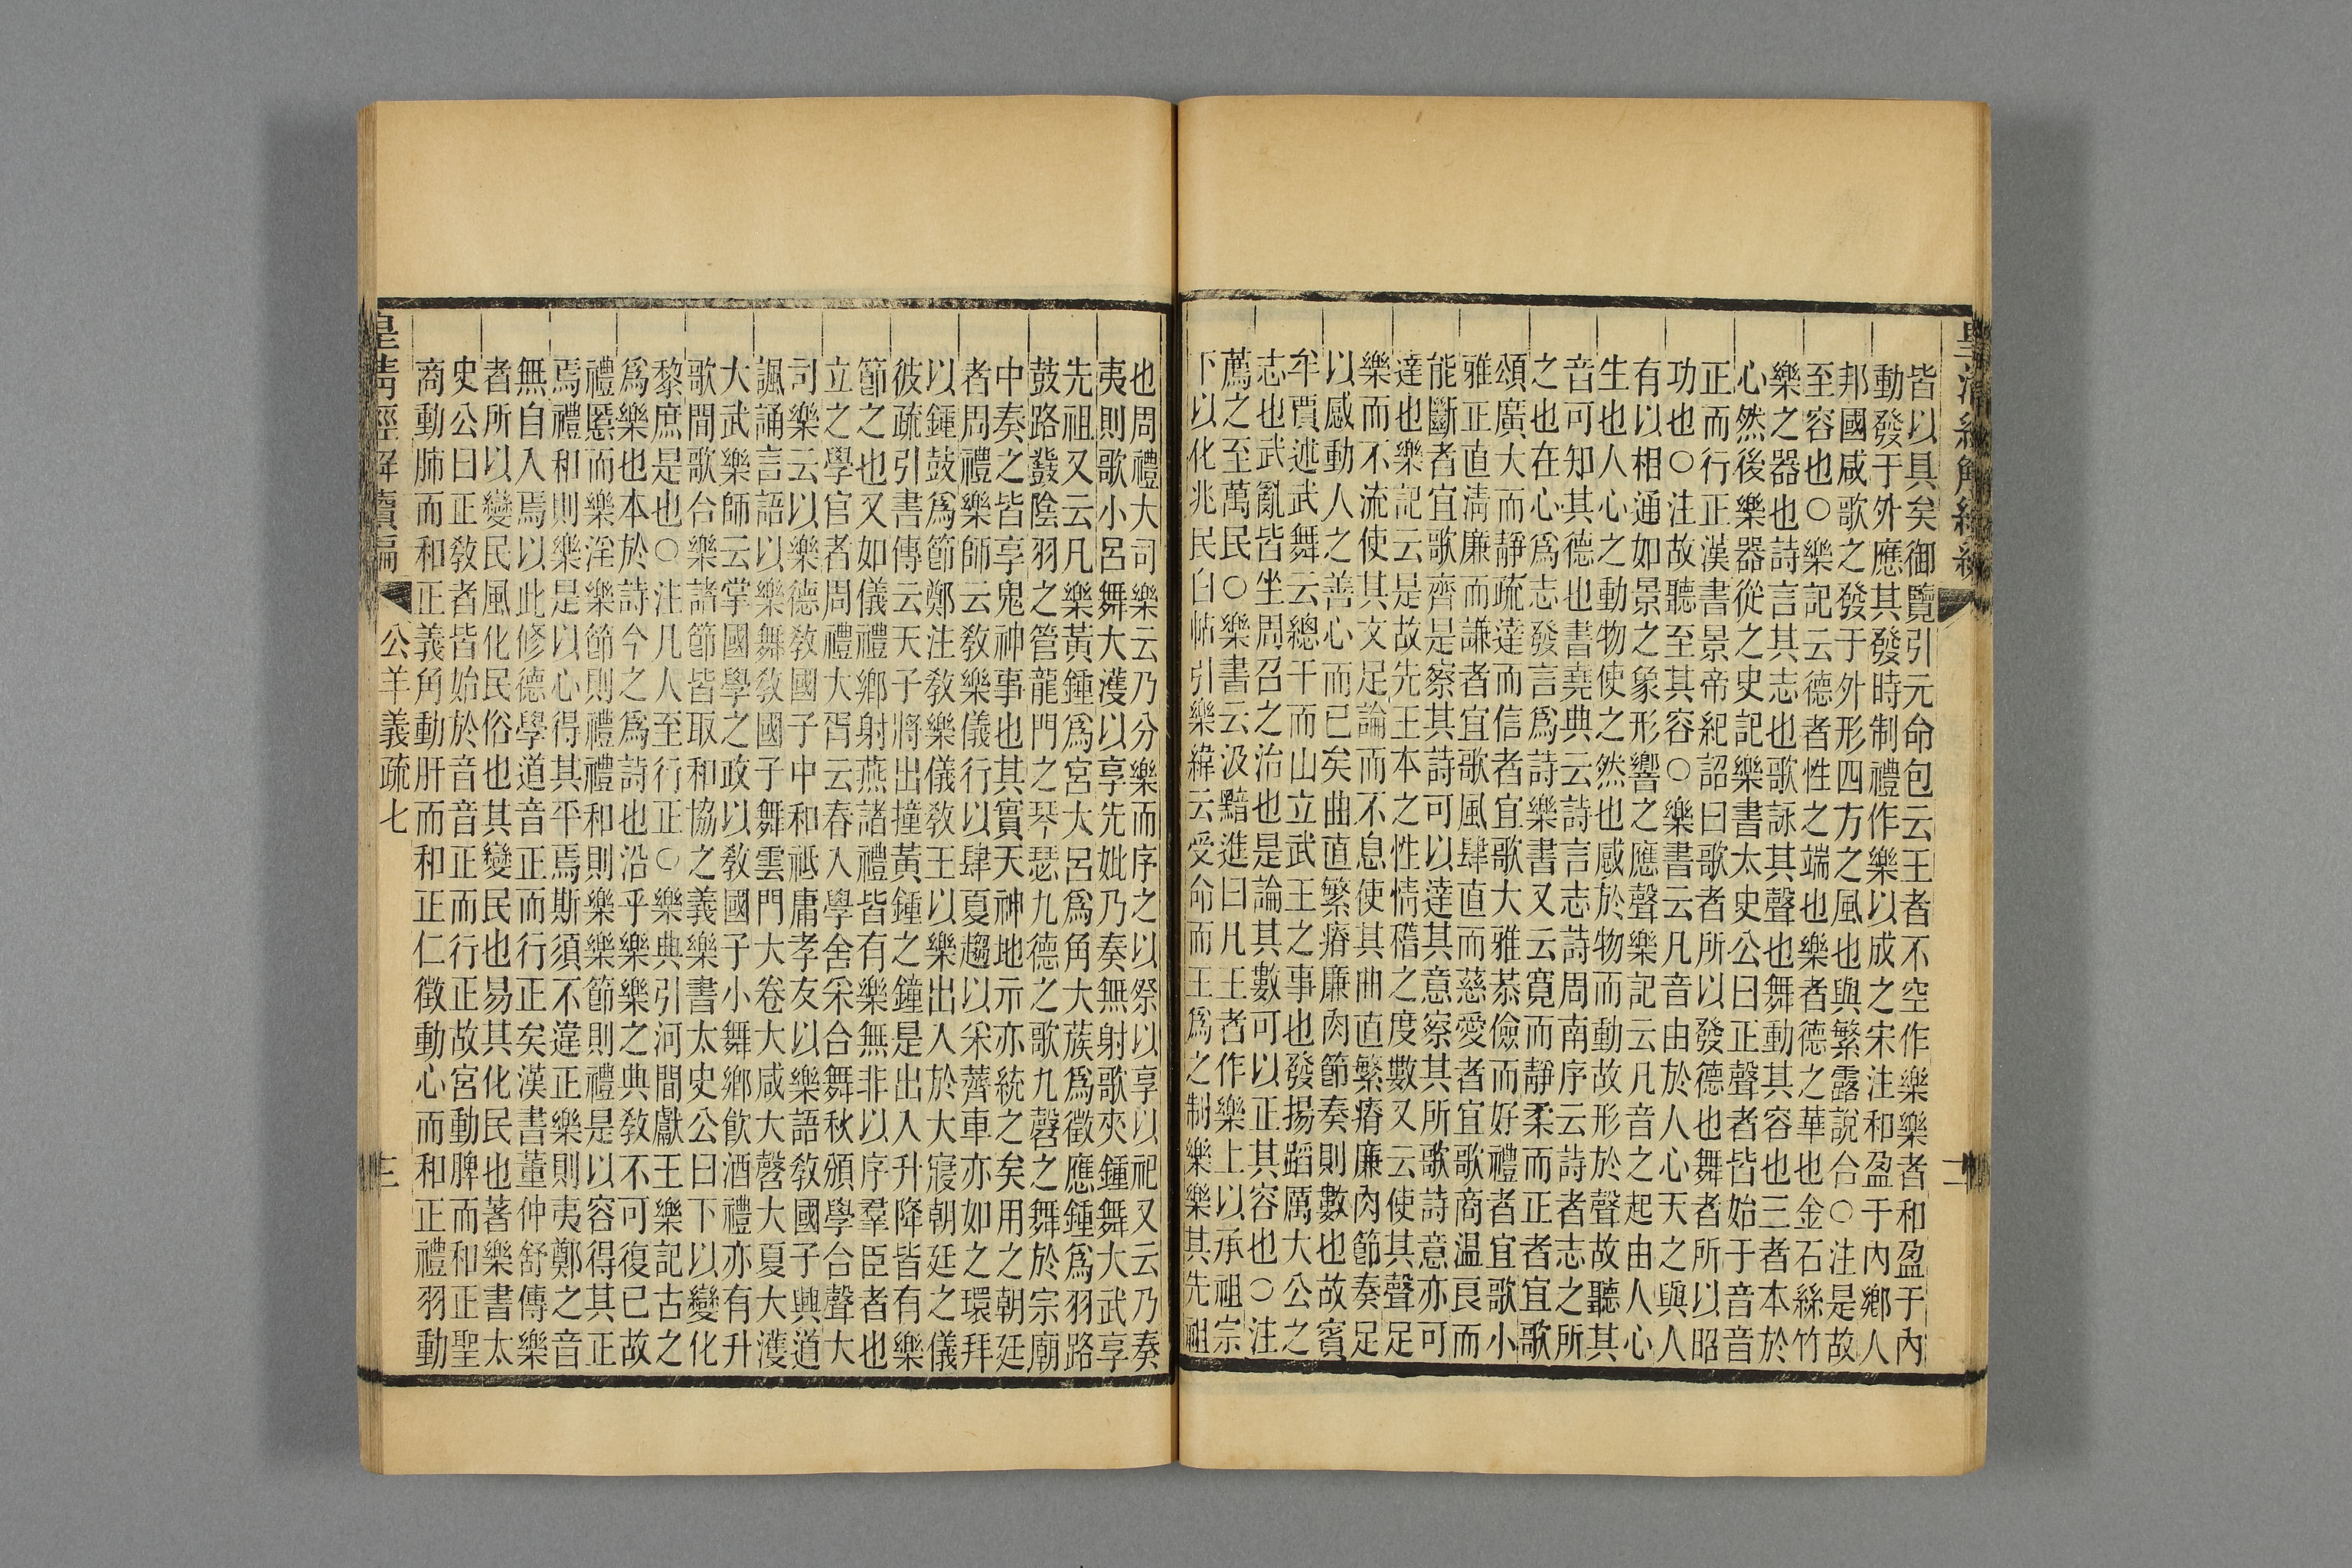 皆以具矣御覽引元命包云王者不空作樂樂者和盈于內
動發于外應其發時制禮作樂以成之宋注和盈于內鄉人
邦國咸歌之發于外形四方之風也與繁露說合○注是故
至容也○樂記云德者性之端也樂者德之華也金石絲竹
樂之器也詩言其志也歌詠其聲也舞動其容也三者本於
心然後樂器從之史記樂書太史公曰正聲者皆始于音音
正而行正漢書景帝紀詔曰歌者所以發德也舞者所以昭
功也○注故聽至其容○樂書云凡音由於人心天之與人
有以相通如景之象形響之應聲樂記云凡音之起由人心
生也人心之動物使之然也感於物而動故形於聲故聽其
音可知其德也書堯典云詩言志詩周南序云詩者志之所
之也在心爲志發言爲詩樂書又云寬而靜柔而正者宜歌
頌廣大而靜疏達而信者宜歌大雅恭儉而好禮者宜歌小
雅正直淸廉而謙者宜歌風肆直而慈愛者宜歌商温良而
能斷者宜歌齊是察其詩可以達其意察其所歌詩意亦可
達也樂記云是故先王本之性情稽之度數又云使其聲足
樂而不流使其文足論而不息使其曲直繁瘠廉肉節奏足
以感動人之善心而已矣曲直繁瘠廉肉節奏則數也故賓
牟賈述武舞云總干而山立武王之事也發揚蹈厲大公之
志也武亂皆坐周召之治也是論其數可以正其容也○注
薦之至萬民○樂書云汲黯進曰凡王者作樂上以承祖宗
下以化兆民白帖引樂緯云受命而王爲之制樂樂其先祖
也周禮大司樂云乃分樂而序之以祭以享以祀又云乃奏
夷則歌小呂舞大濩以享先妣乃奏無射歌夾鍾舞大武享
先祖又云凡樂黃鍾爲宮大呂爲角大蔟爲徵應鍾爲羽路
鼓路鼗陰羽之管龍門之琴瑟九德之歌九磬之舞於宗廟
中奏之皆享鬼神事也其實天神地示亦統之矣用之朝廷
者周禮樂師云敎樂儀行以肆夏趨以采薺車亦如之環拜
以鍾鼓爲節鄭注敎樂儀敎王以樂出入於大寢朝廷之儀
彼疏引書傳云天子將出撞黃鍾之鐘是出入升降皆有樂
節之也又如儀禮鄉射燕諸禮皆有樂無非以序羣臣者也
立之學官者周禮大胥云春入學舍采合舞秋頒學合聲大
司樂云以樂德敎國子中和祗庸孝友以樂語敎國子興道
諷誦言語以樂舞敎國子舞雲門大卷大咸大磬大夏大濩
大武樂師云掌國學之政以敎國子小舞鄉飮酒禮亦有升
歌間歌合樂諸節皆取和協之義樂書太史公曰下以變化
黎庶是也○注凡人至行正○樂典引河間獻王樂記古之
爲樂也本於詩今之爲詩也沿乎樂樂之典敎不可復已故
禮慝而樂淫樂節則禮和則樂樂節則禮是以容得其正
焉禮和則樂是以心得其平焉斯須不違正樂則夷鄭之音
無自入焉以此修德學道音正而行正矣漢書董仲舒傳樂
者所以變民風化民俗也其變民也易其化民也著樂書太
史公曰正敎者皆始於音音正而行正故宮動脾而和正聖
商動肺而和正義角動肝而和正仁徵動心而和正禮羽動
皇淸經解續編
公羊義疏七
三